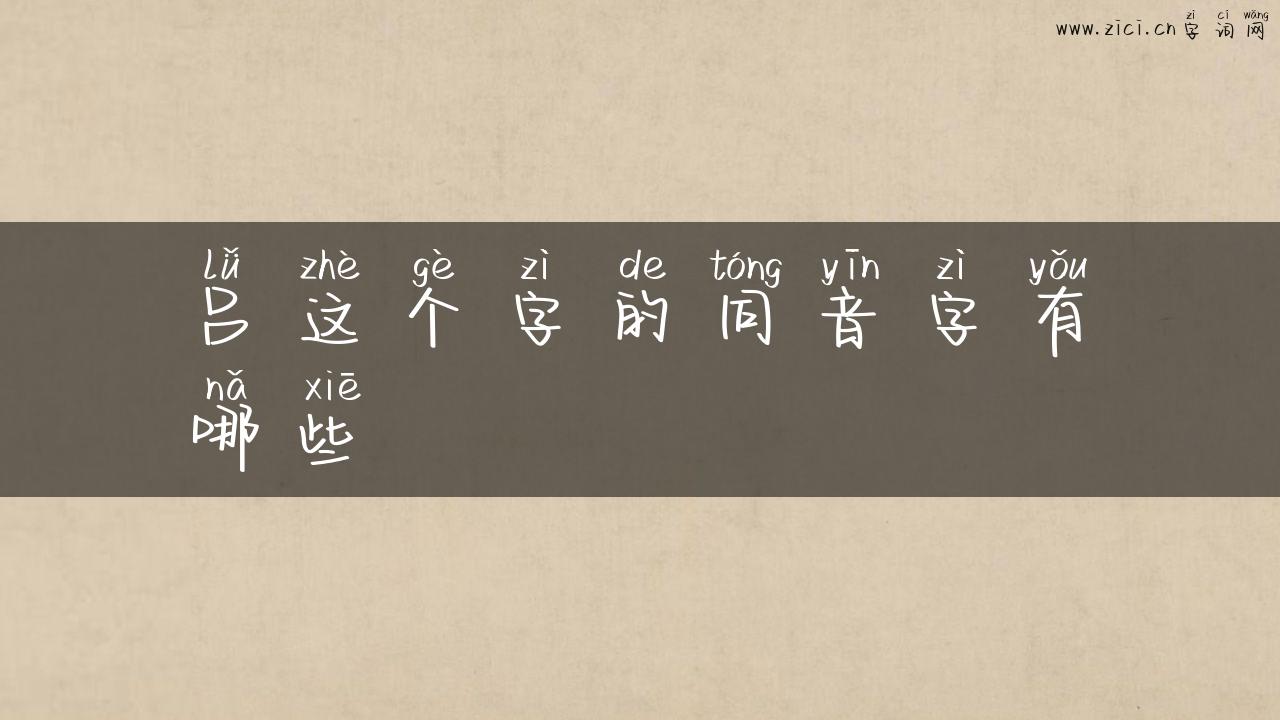 zì cí wǎng
www.zici.cn字词网
lǚ zhè gè zì de tóng yīn zì yǒu
吕这个字的同音字有
nǎ xiē
哪些